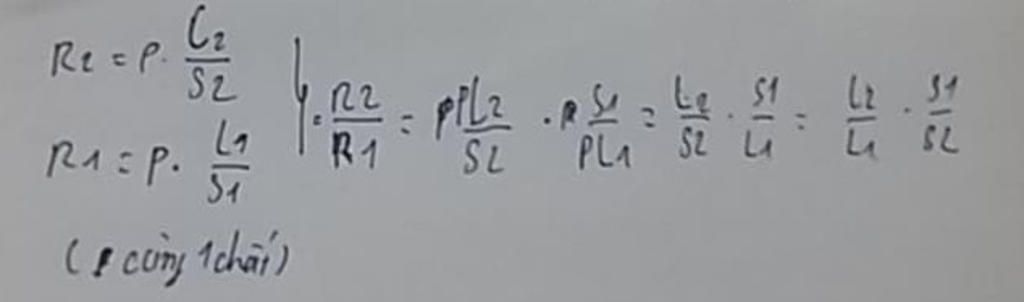 R2 = ρ. L2/S2
R1 = ρ. L1/S1
} . R2/R1 = ρL2/S2 . S1/ρL1 = L2/S2 . S1/L1 = L2/L1 . S1/S2
(ρ cùng 1 chất)